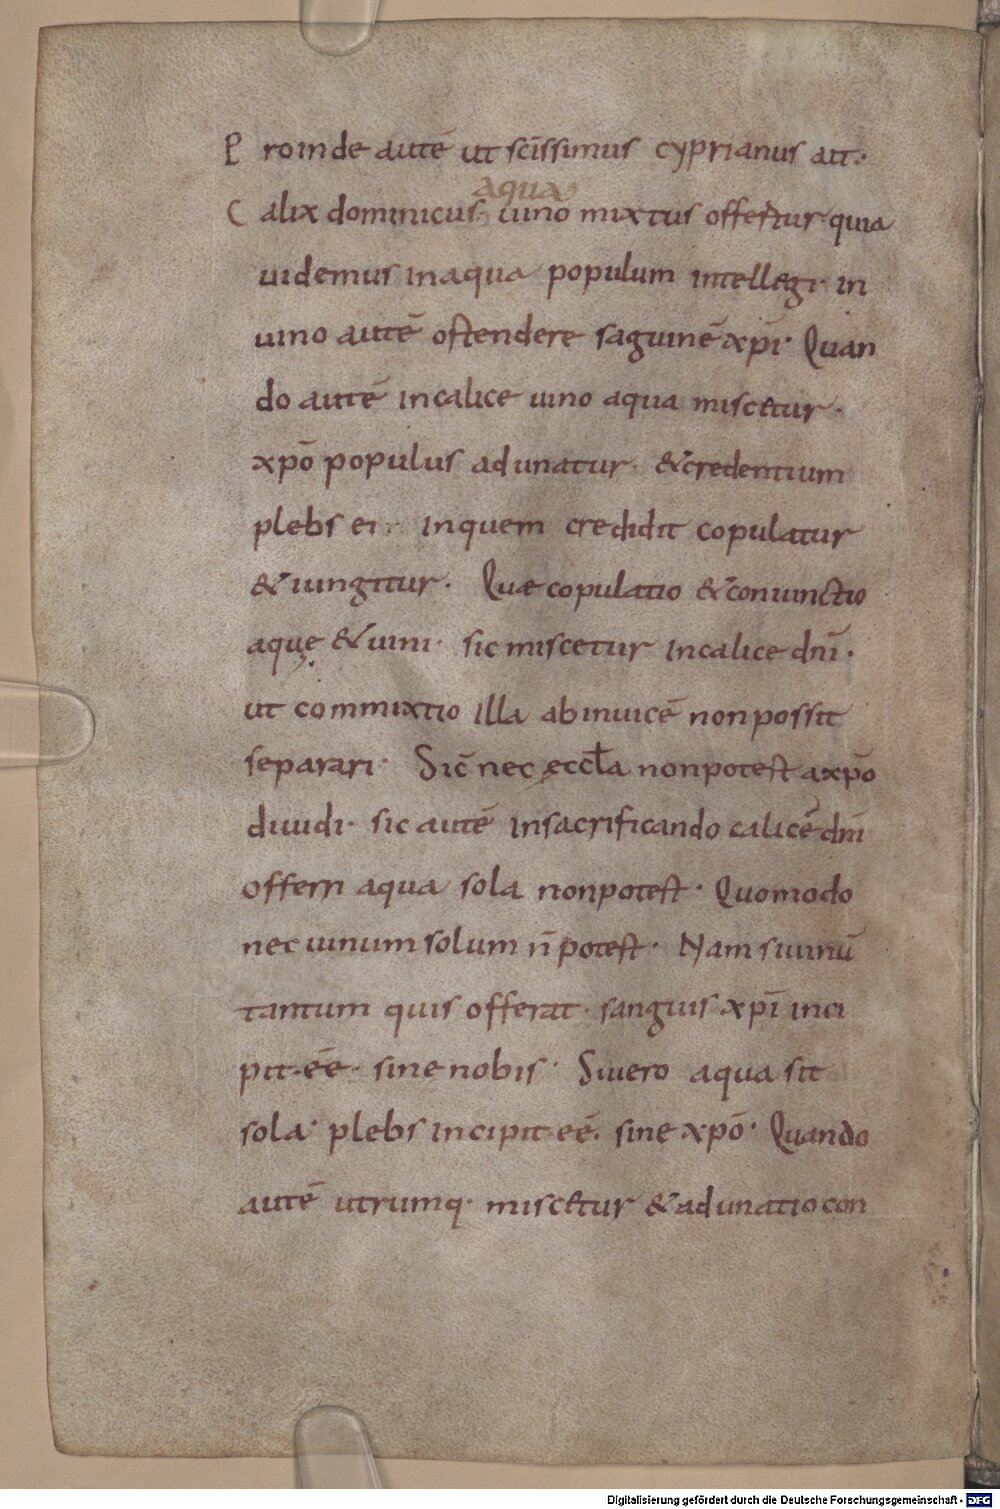 Proinde autē ut scīssimus cyprianus ait.
aqua
Calix dominicus uino mixtus offertur quia
uidemus inaqua populum intellegi· in
uino autē ostendere saguinē xp̄i· Quan
do autē incalice uino aqua miscetur·
xp̄o populus adunatur· &credentium
plebs ei inquem credidit copulatur
&iungitur· Quæ copulatio &coniunctio
aquę &uini· sic miscetur incalice dn̄i·
ut commixtio illa abinuicē nonpossit
separari· Sic̄ nec ęccl̄a nonpotest axp̄o
diuidi· sic autē insacrificando calicē dn̄i
offerri aqua sola nonpotest· Quomodo
nec uinum solum n̄ potest· Nam siuinū
tantum quis offerat· sanguis xp̄i inci
pit·eē· sine nobis· Siuero aqua sit
sola· plebs incipit·eē· sine xp̄o· Quando
autē utrumq· miscetur &adunatio con
Digitalisierung gefördert durch die Deutsche Forschungsgemeinschaft - DFG